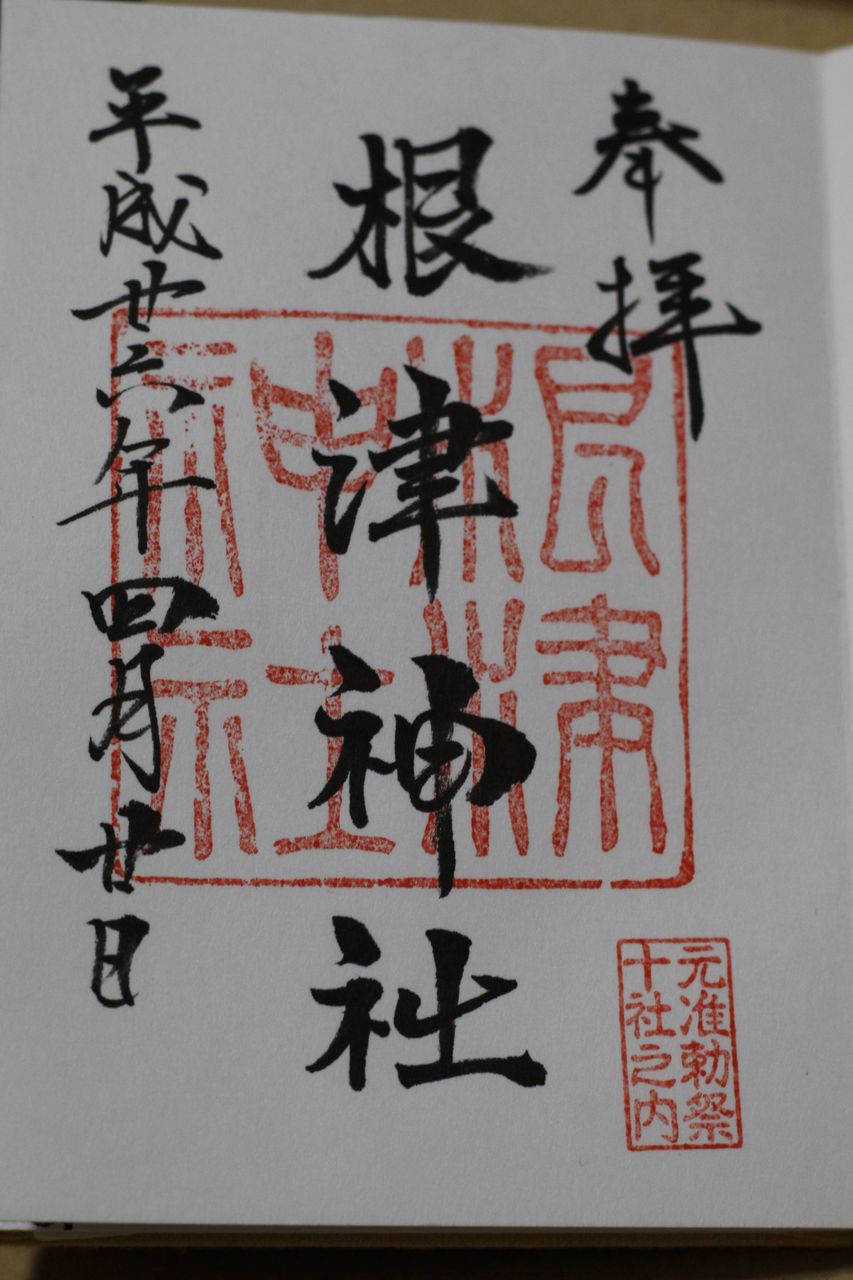 奉拝
根津神社
平成廿六年四月廿日
元准勅祭
十社之内